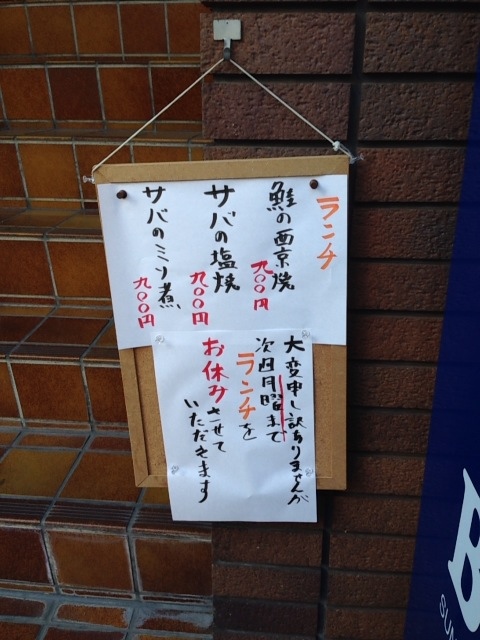 ランチ
鮭の西京焼
九〇〇円
サバの塩焼
九〇〇円
サバのミソ煮
九〇〇円
大変申し訳ありませんが
次回月曜まで
ランチを
お休みさせて
いただきます
B